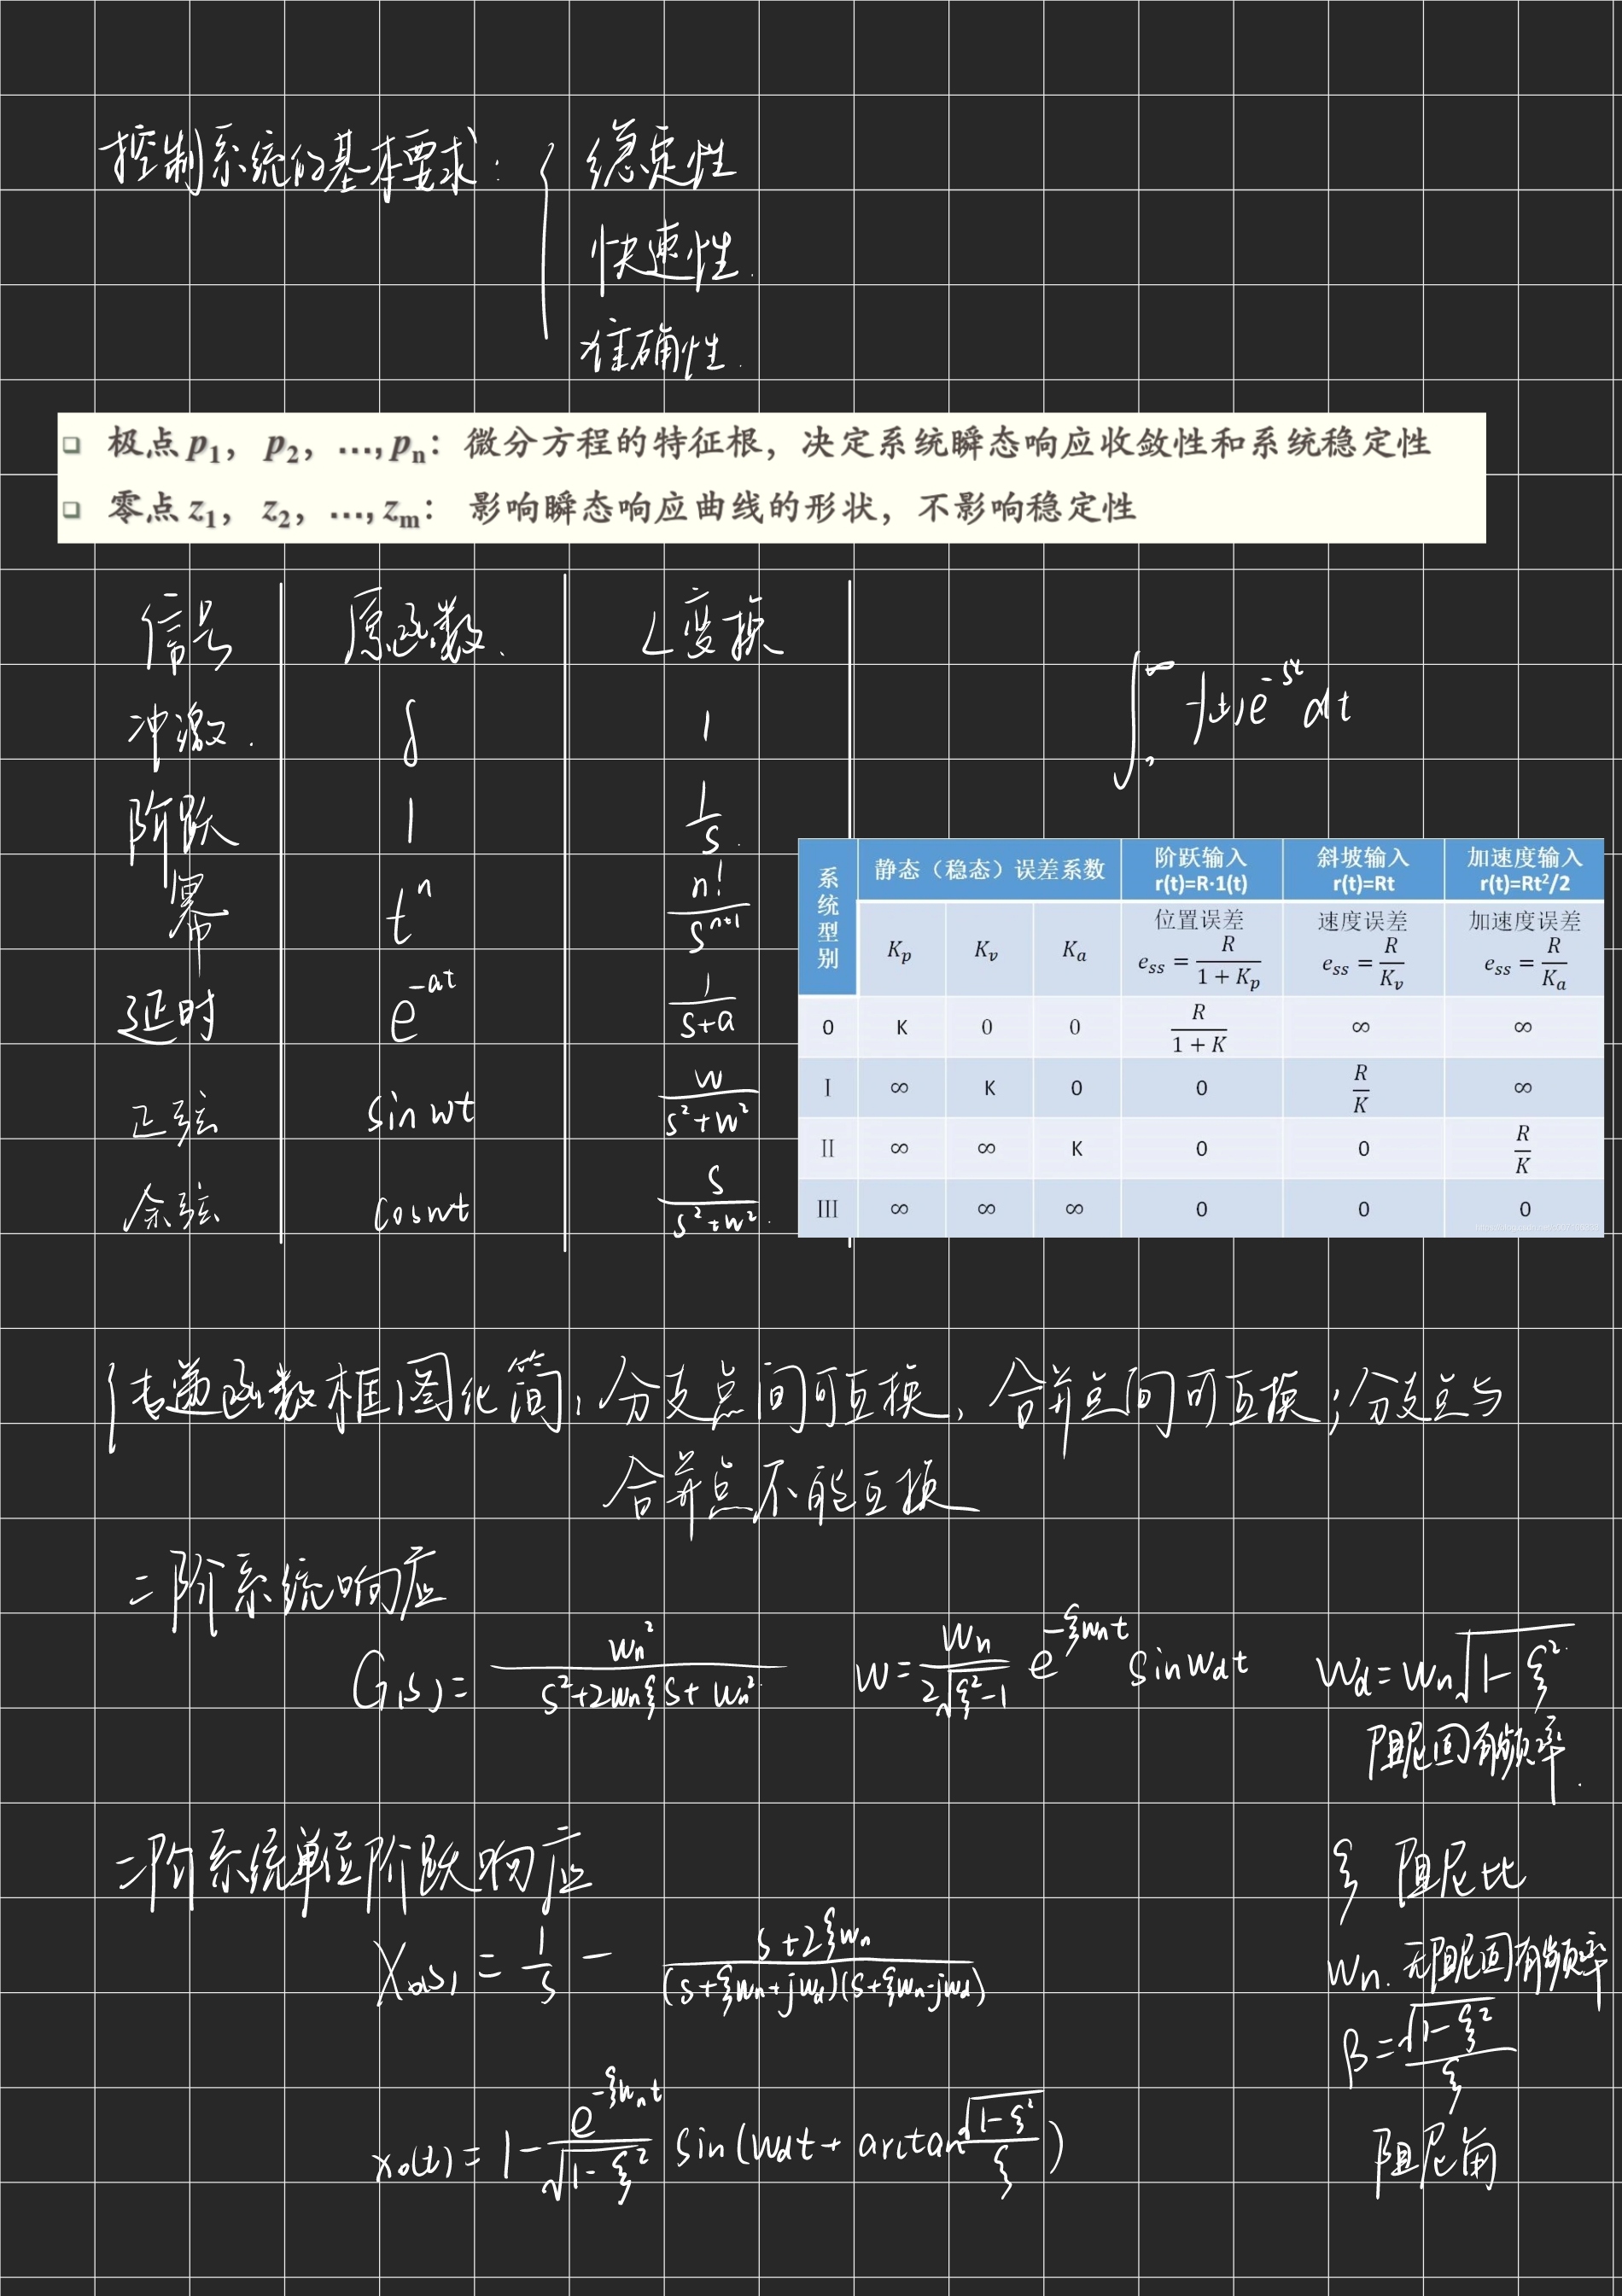 控制系统的基本要求: { 稳定性
快速性.
准确性.
□ 极点 p₁, p₂, …, pₙ: 微分方程的特征根, 决定系统瞬态响应收敛性和系统稳定性
□ 零点 z₁, z₂, …, zₘ: 影响瞬态响应曲线的形状, 不影响稳定性
信号 原函数. L变换
冲激. δ 1
阶跃 1 1/s.
幂 tⁿ n!/sⁿ⁺¹
延时 e^(-at) 1/(s+a)
正弦 sin wt w/(s²+w²)
余弦 cos wt s/(s²+w²).
∫₀^∞ f(t)e^(-st) dt
系统型别 静态（稳态）误差系数 阶跃输入 r(t)=R·1(t) 斜坡输入 r(t)=Rt 加速度输入 r(t)=Rt²/2
Kp Kv Ka 位置误差 ess = R/(1 + Kp) 速度误差 ess = R/Kv 加速度误差 ess = R/Ka
0 K 0 0 R/(1 + K) ∞ ∞
I ∞ K 0 0 R/K ∞
II ∞ ∞ K 0 0 R/K
III ∞ ∞ ∞ 0 0 0
传递函数框图化简: 分支点间可互换, 合并点间可互换; 分支点与
合并点不能互换
二阶系统响应
G(s) = wn²/(s²+2wnξs+wn²) w = wn/(2√(ξ²-1)) e^(-ξwnt) sin wdt wd = wn√(1-ξ²)
阻尼固有频率.
二阶系统单位阶跃响应
Xo(s) = 1/s - (s+2ξwn)/((s+ξwn+jwd)(s+ξwn-jwd))
xo(t) = 1 - e^(-ξwnt)/√(1-ξ²) sin(wdt + arctan √(1-ξ²)/ξ)
ξ 阻尼比
wn. 无阻尼固有频率
β = √(1-ξ²)/ξ
阻尼角